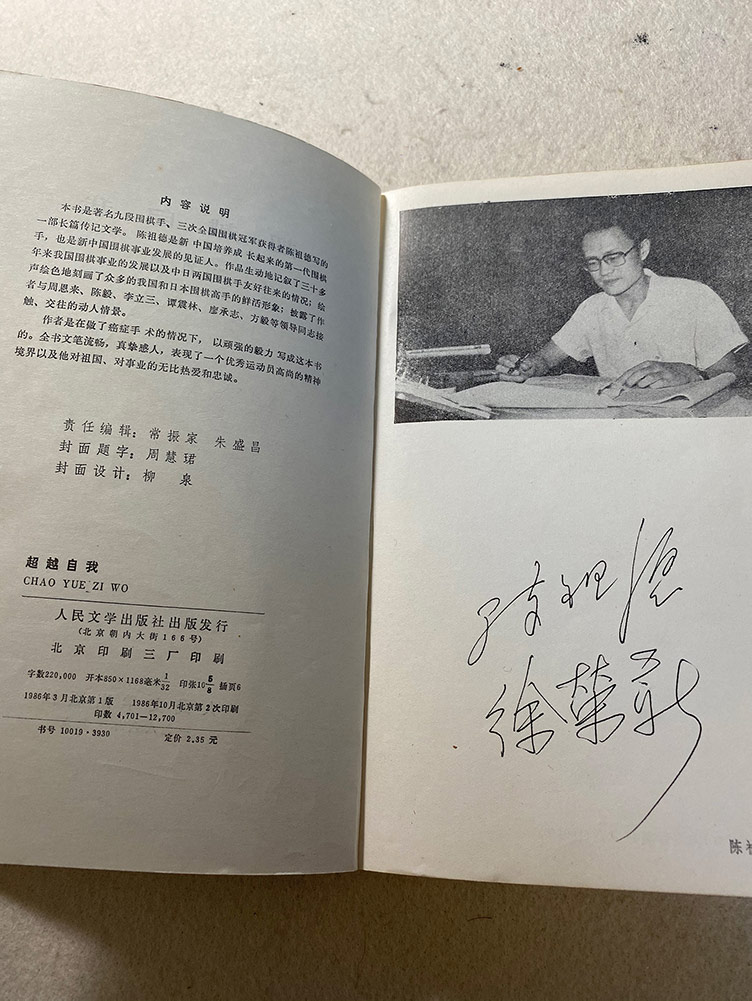 内容说明
本书是著名九段围棋手、三次全国围棋冠军获得者陈祖德写的
一部长篇传记文学。陈祖德是新中国培养成长起来的第一代围棋
手，也是新中国围棋事业发展的见证人。作品生动地记叙了三十多
年来我国围棋事业的发展以及中日两国围棋手友好往来的情况；绘
声绘色地刻画了众多的我国和日本围棋高手的鲜活形象；披露了作
者与周恩来、陈毅、李立三、谭震林、廖承志、方毅等领导同志接
触、交往的动人情景。
作者是在做了癌症手术的情况下，以顽强的毅力写成这本书
的。全书文笔流畅，真挚感人，表现了一个优秀运动员高尚的精神
境界以及他对祖国、对事业的无比热爱和忠诚。
责任编辑：常振家 朱盛昌
封面题字：周慧珺
封面设计：柳 泉
超越自我
CHAO YUE ZI WO
人民文学出版社出版发行
（北京朝内大街166号）
北京印刷三厂印刷
字数220,000 开本850×1168毫米1/32 印张10 5/8 插页6
1986年3月北京第1版 1986年10月北京第2次印刷
印数 4,701-12,700
书号 10019·3930 定价 2.35 元
陈祖德
徐荣新
陈祖